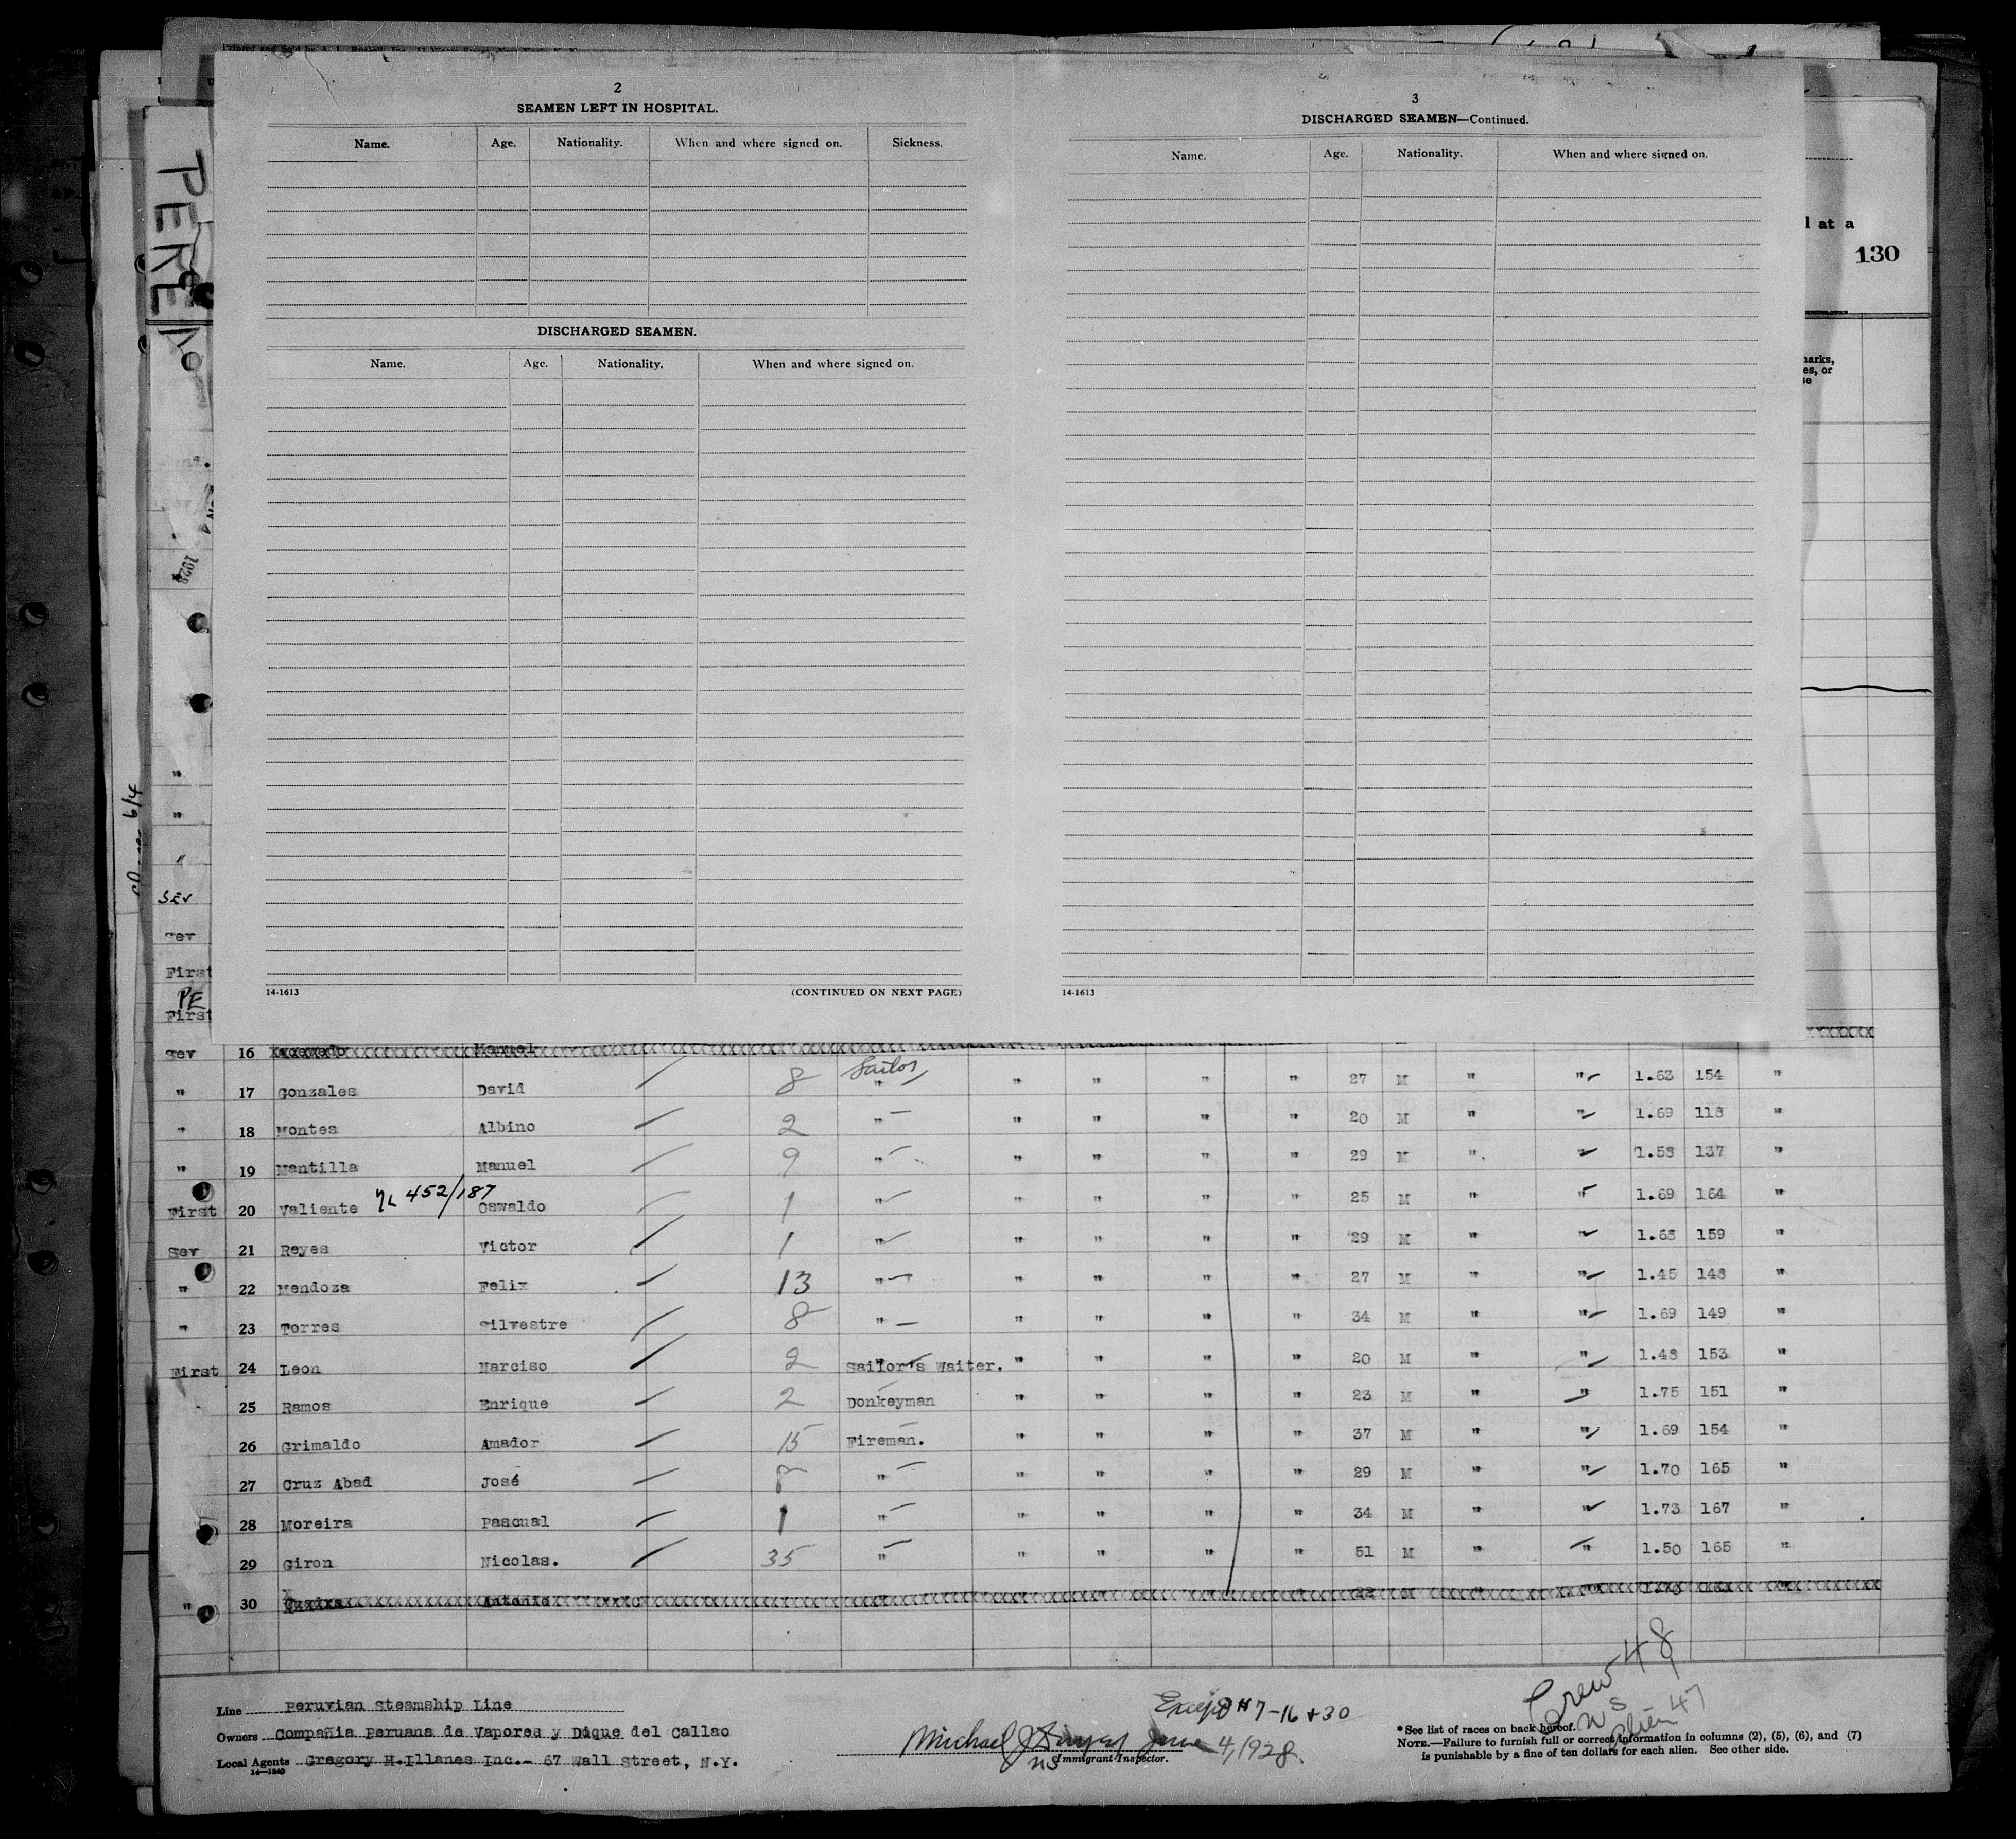 2
SEAMEN LEFT IN HOSPITAL.
Name. Age. Nationality. When and where signed on. Sickness.
DISCHARGED SEAMEN.
Name. Age. Nationality. When and where signed on.
14-1613 (CONTINUED ON NEXT PAGE)
3
DISCHARGED SEAMEN—Continued.
Name. Age. Nationality. When and where signed on.
14-1613
at a
130
es, or
1928
6/4
SEV
First
PE
First
Sev 16 Manuel
Sailor
" 17 Gonzales David 8 " " " " " 27 M " " 1.63 154 "
" 18 Montes Albino 2 " " " " " 20 M " " 1.69 118 "
" 19 Mantilla Manuel 9 " " " " " 29 M " " 1.58 137 "
First 20 Valiente 452/187 Oswaldo 1 " " " " " 25 M " " 1.69 164 "
Sev 21 Reyes Victor 1 " " " " " 29 M " " 1.68 159 "
" 22 Mendoza Felix 13 " " " " " 27 M " " 1.45 148 "
" 23 Torres Silvestre 8 " " " " " 34 M " " 1.69 149 "
First 24 Leon Narciso 2 Sailor's Waiter. " " " " 20 M " " 1.48 153 "
25 Ramos Enrique 2 Donkeyman " " " " 23 M " " 1.75 151 "
26 Grimaldo Amador 15 Fireman. " " " " 37 M " " 1.69 154 "
27 Cruz Abad José " " " " " 29 M " " 1.70 165 "
28 Moreira Pascual 1 " " " " " 34 M " " 1.73 167 "
29 Giron Nicolas. 35 " " " " " 51 M " " 1.50 165 "
" 30 Antonio
Crew 48
NS
Alien 47
Line Peruvian Steamship Line
Owners Compañia Peruana de Vapores y Dique del Callao
Local Agents Gregory H.Illanes Inc.- 67 Wall Street, N.Y.
14-1240
Except #7-16+30
Michael J June 4, 1928.
NS Immigrant Inspector.
* See list of races on back hereof.
NOTE.—Failure to furnish full or correct information in columns (2), (5), (6), and (7)
is punishable by a fine of ten dollars for each alien. See other side.